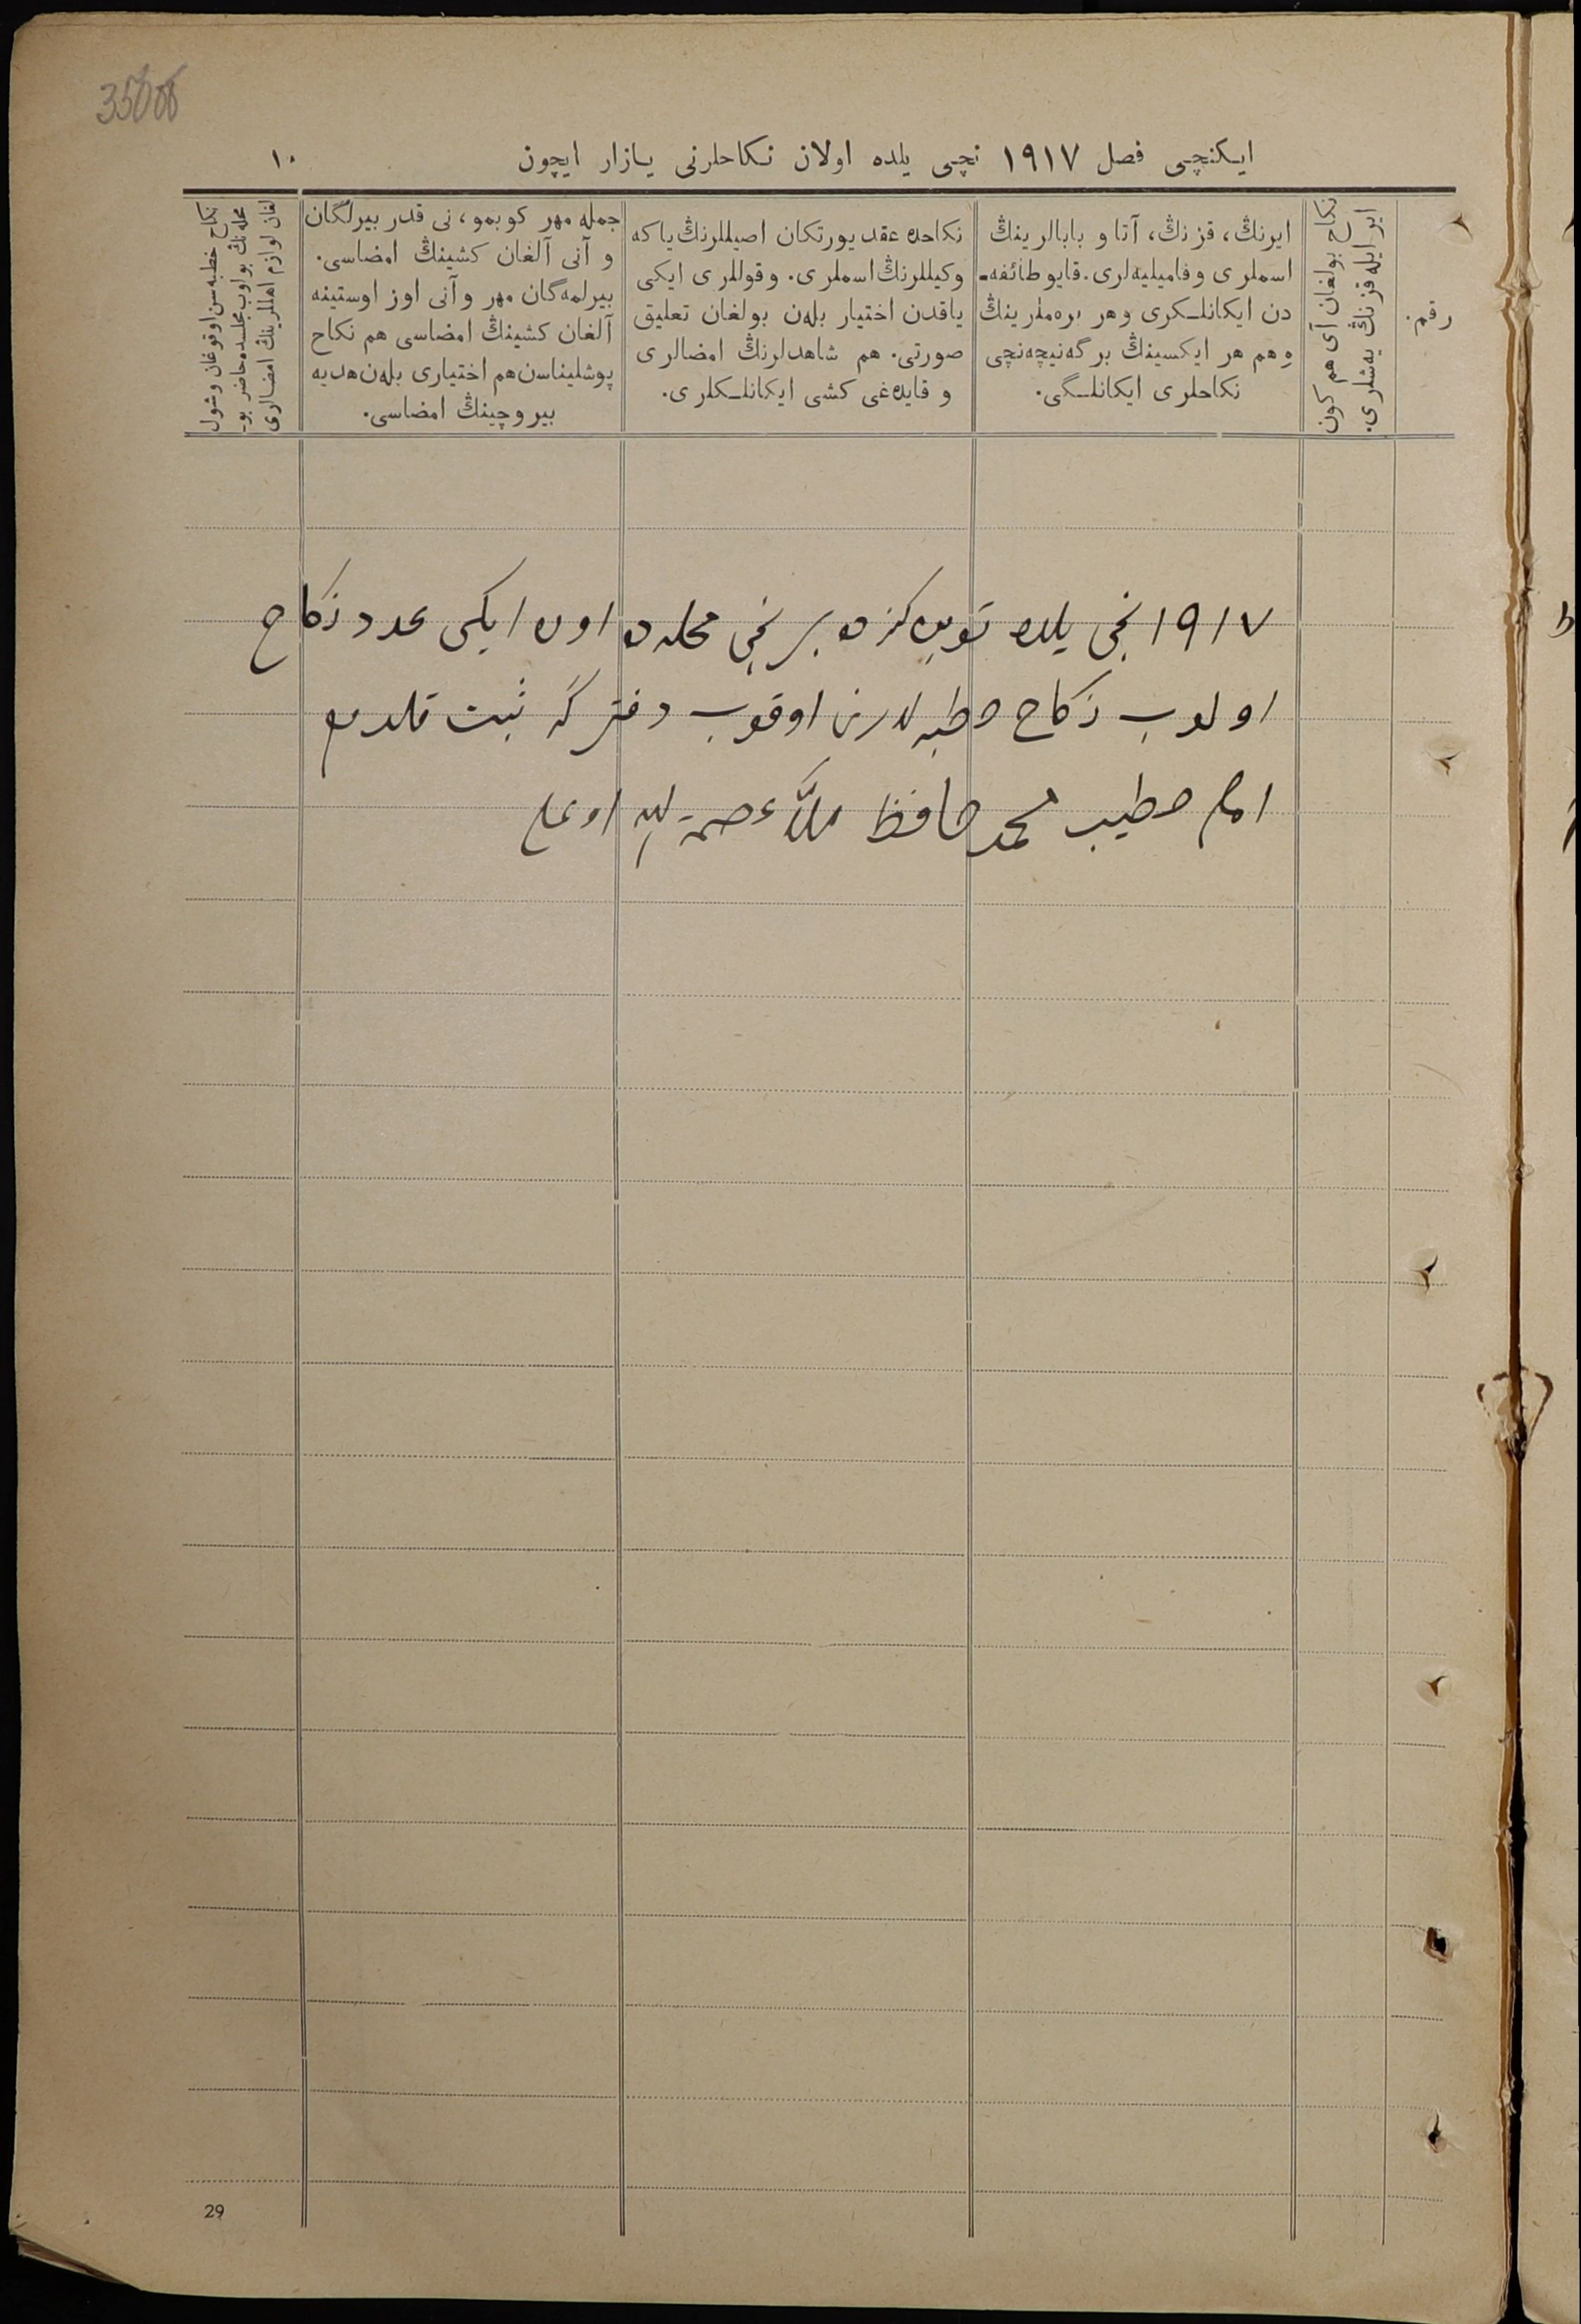 ایکنچی فصل ۱۹۱۷ نچی یلده اولان نکاحلرنی یازار ایچون
۱۰
رقم.
نکاح بولغان آی هم کون
ایر ایله قزنڭ یه‌شلری.
ایرنڭ، قزنڭ، آتا و بابالرینڭ
اسملری و فامیلیه‌لری. قایو طائفه‌ـ
دن ایکانلـکری و هر بره‌ملرینڭ
و هم هر ایکسینڭ برگه‌نیچه‌نچی
نکاحلری ایکانلـگی.
نکاحده عقد یورتکان اصیللرنڭ یاکه
وکیللرنڭ اسملری. و قوللری ایکی
یاقدن اختیار بله‌ن بولغان تعلیق
صورتی. هم شاهدلرنڭ امضالری
و قایده‌غی کشی ایکانلـکلری.
جمله مهر کوبمو، نی قدر بیرلگان
و آنی آلغان کشینڭ امضاسی.
بیرلمه‌گان مهر و آنی اوز اوستینه
آلغان کشینڭ امضاسی هم نکاح
پوشلیناسن هم اختیاری بله‌ن هدیه
بیروچینڭ امضاسی.
نکاح خطبه‌سن اوقوغان و شول
محله‌نڭ بولوب مجلسده حاضر بو‌ـ
لغان لوازم اهللرینڭ امضالری
۱۹۱۷ نچی یلده برنچی محله‌ده اون ایکی عدد نکاح
اولوب نکاح خطبه لارنی اوقوب دفترگه ثبت قلدم
امام خطیب محمد حافظ ملا عصمة الله اوغلی
29